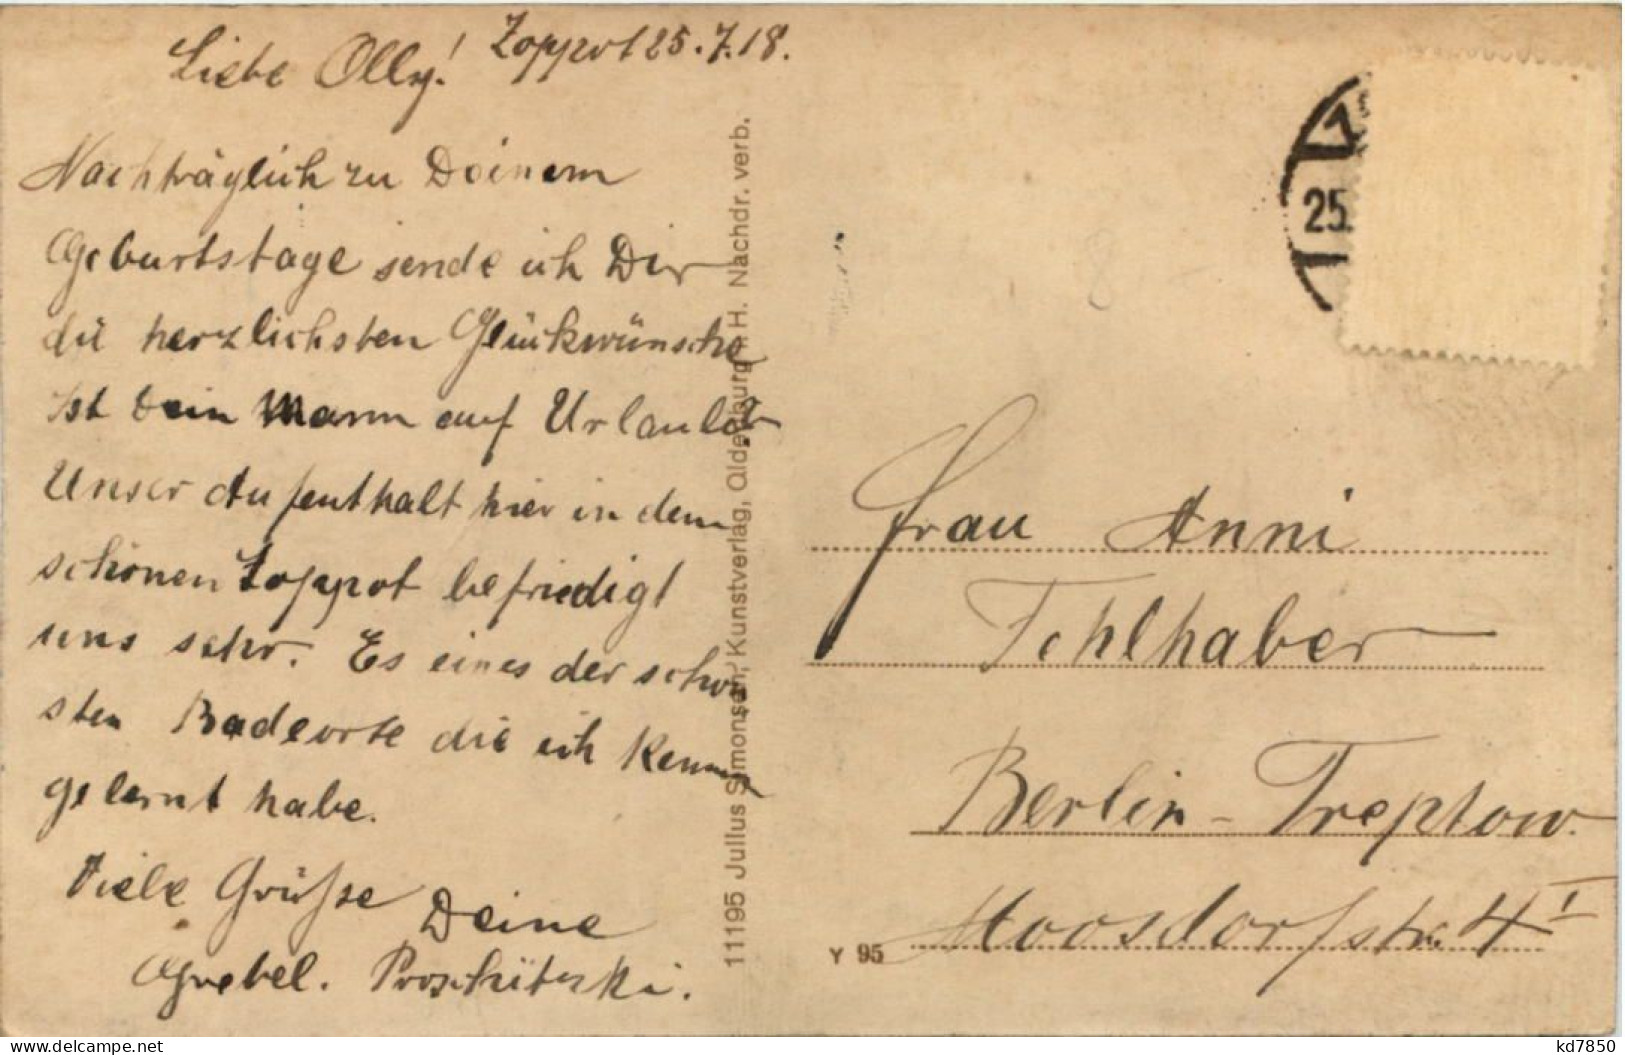 Zoppot 25.7.18.
Liebe Olly!
Nachträglich zu Deinem
Geburtstage sende ich Dir
die herzlichsten Glückwünsche
Ist Dein Mann auf Urlaub?
Unser Aufenthalt hier in dem
schönen Zoppot befriedigt
uns sehr. Es eines der schön
sten Badeorte die ich kennen
gelernt habe.
Viele Grüße Deine
11195 Julius Simonsen, Kunstverlag, Oldenburg i. H. Nachdr. verb.
1
25.
Frau Anni
Fehlhaber
Berlin-Treptow.
Y 95
Moosdorfstr. 4 I
www.delcampe.net
kd7850